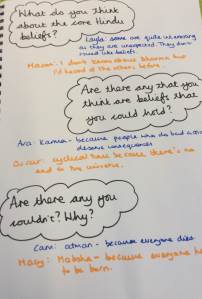 What do you think
about the core Hindu
beliefs?
Layla: some are quite interesting
as they are unexpected. They don't
sound like beliefs.
Mason: I didn't know about dharma but
I'd heard of the others before.
Are there any that
you think are beliefs that
you could hold?
Ava: Karma - because people who do bad
deserve consequences
Oscar: cyclical time because there's no
end to the universe.
Are there any you
couldn't? Why?
Cam: atman - because everyone dies
Macy: Moksha - because everyone
to be born.